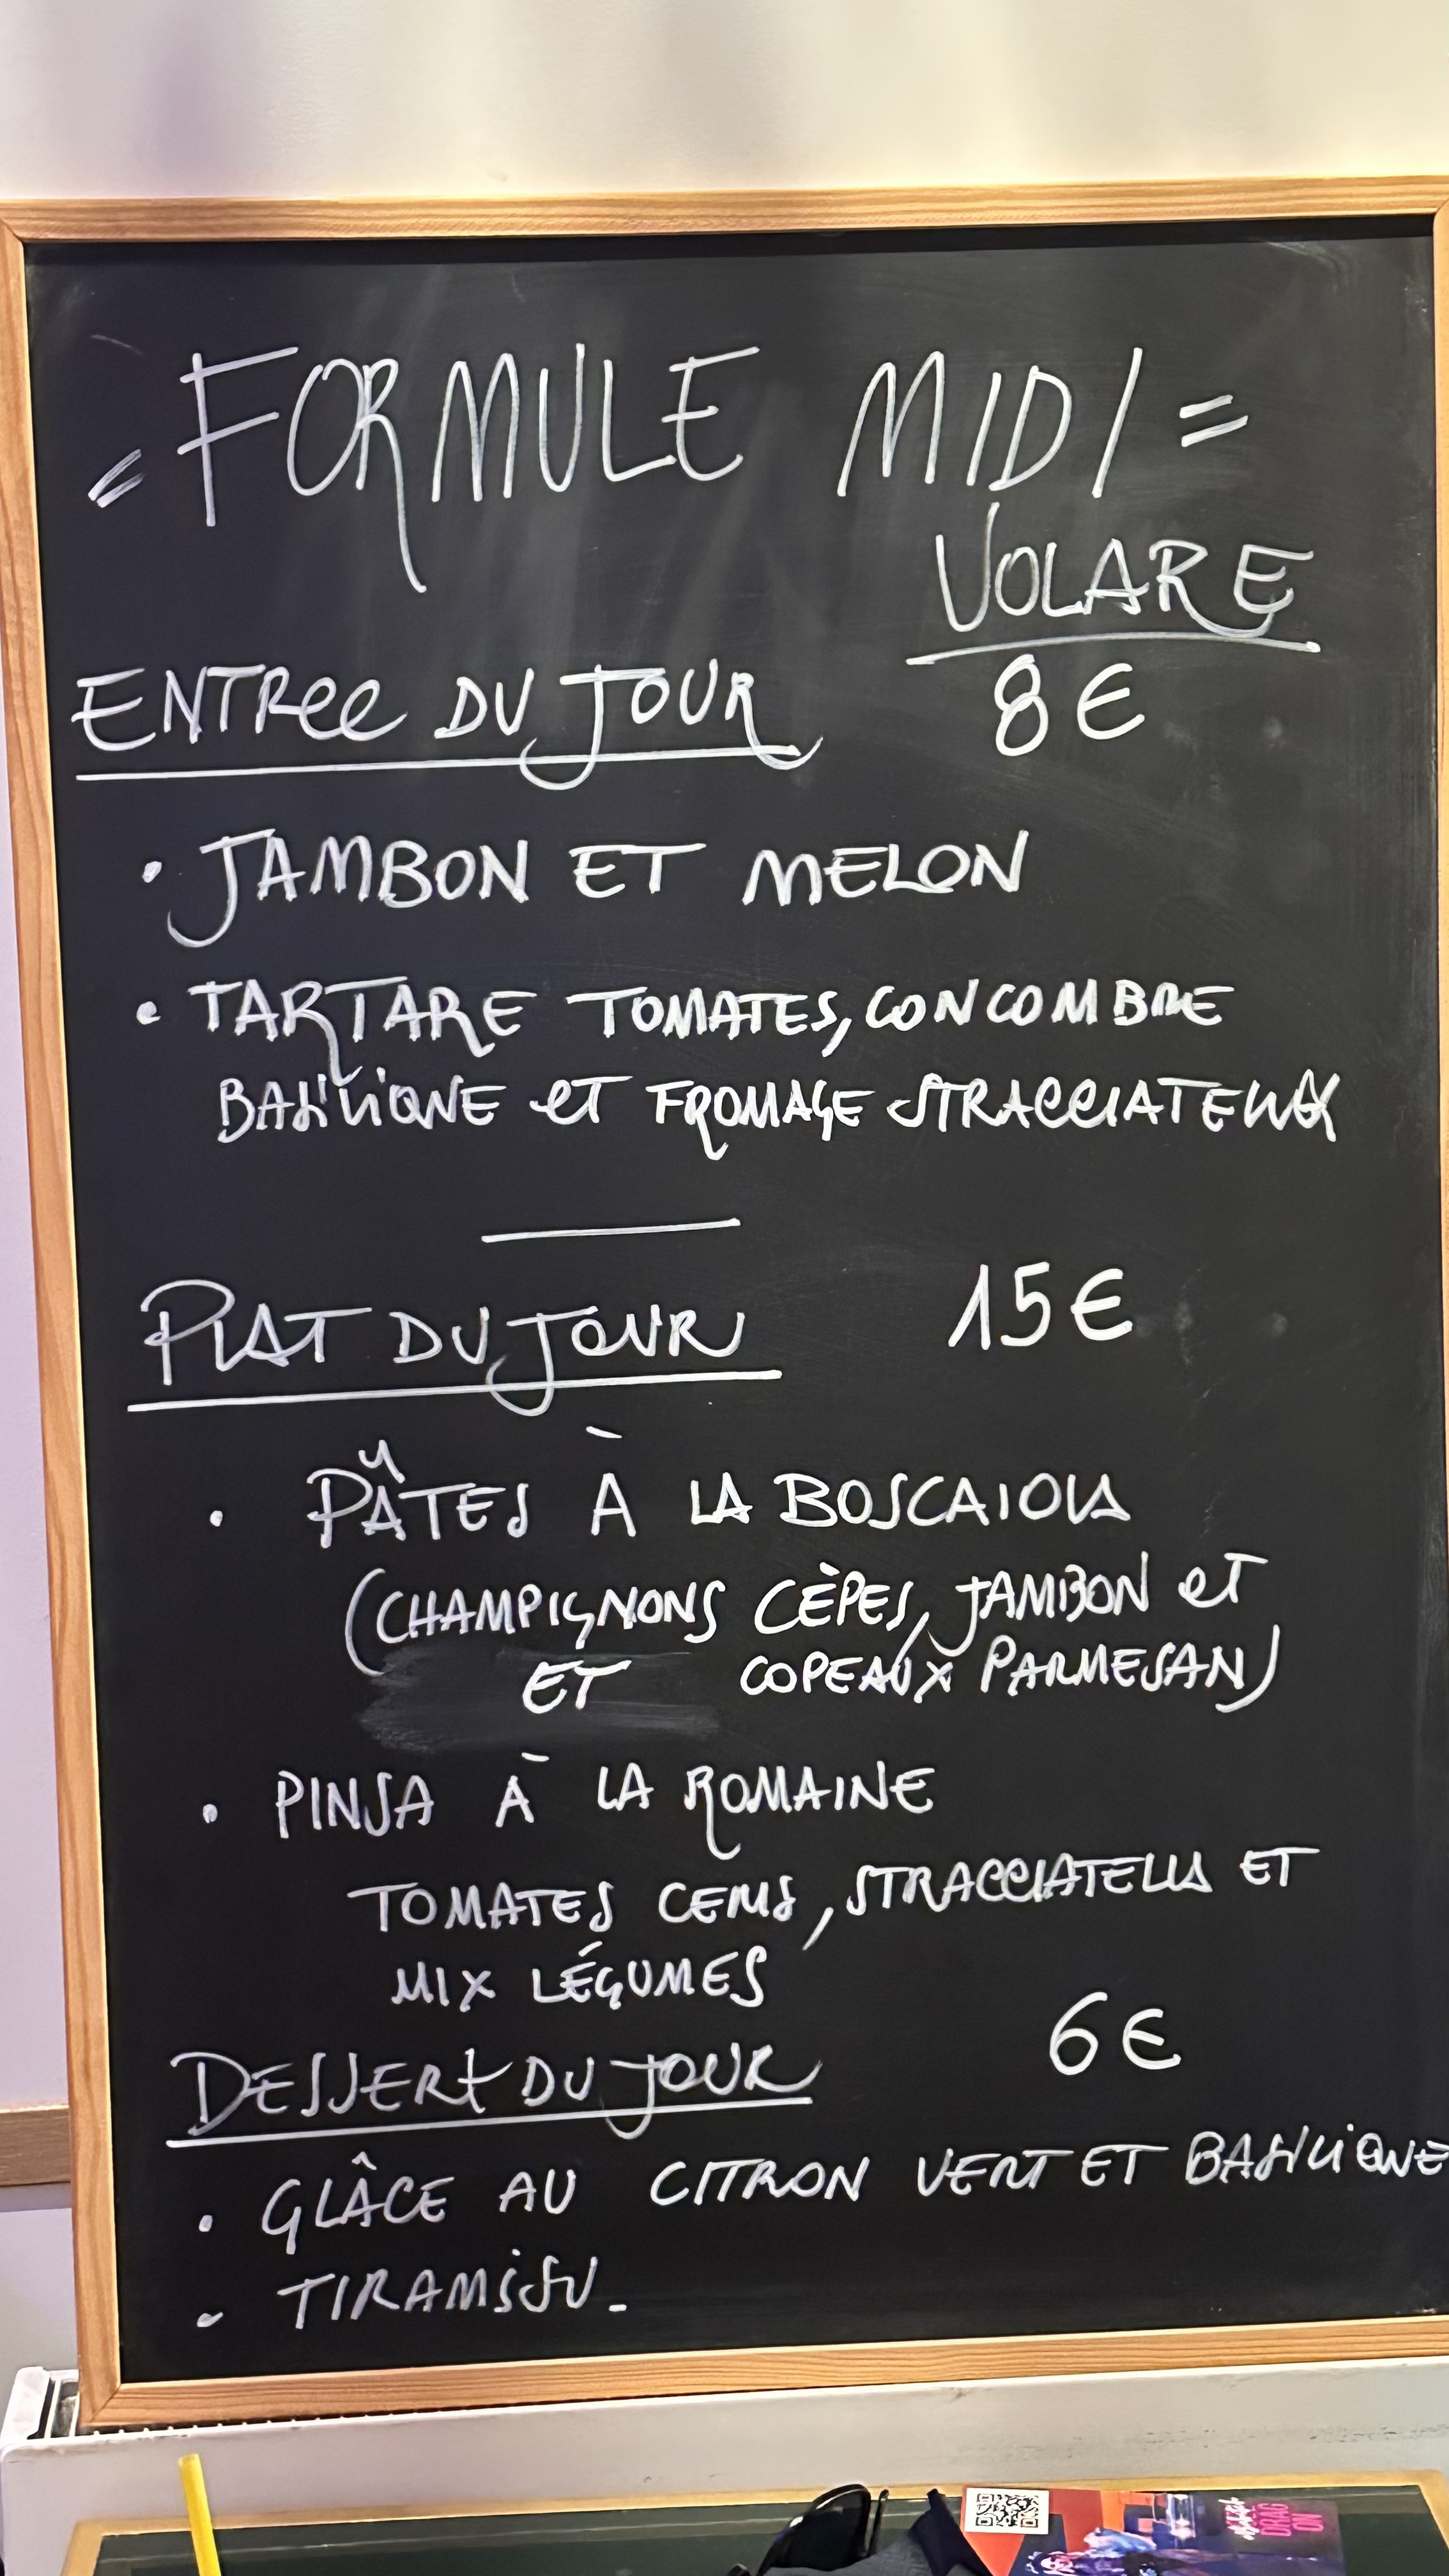 = FORMULE MIDI =
VOLARE
ENTRee DU JOUR 8€
• JAMBON ET MELON
• TARTARE TOMATES, CONCOMBRE
BASILIQUE et FROMAGE STRACCIATELLA
PLAT DU JOUR 15€
• PÂTES À LA BOSCAIOLA
(CHAMPIGNONS CÈPES, JAMBON et
ET COPEAUX PARMESAN)
• PINSA À LA ROMAINE
TOMATES CERIS, STRACCIATELLA ET
MIX LÉGUMES
DESSERT DU JOUR 6€
• GLÂCE AU CITRON VERT ET BASILIQUE
• TIRAMISU.
DRAG
ON